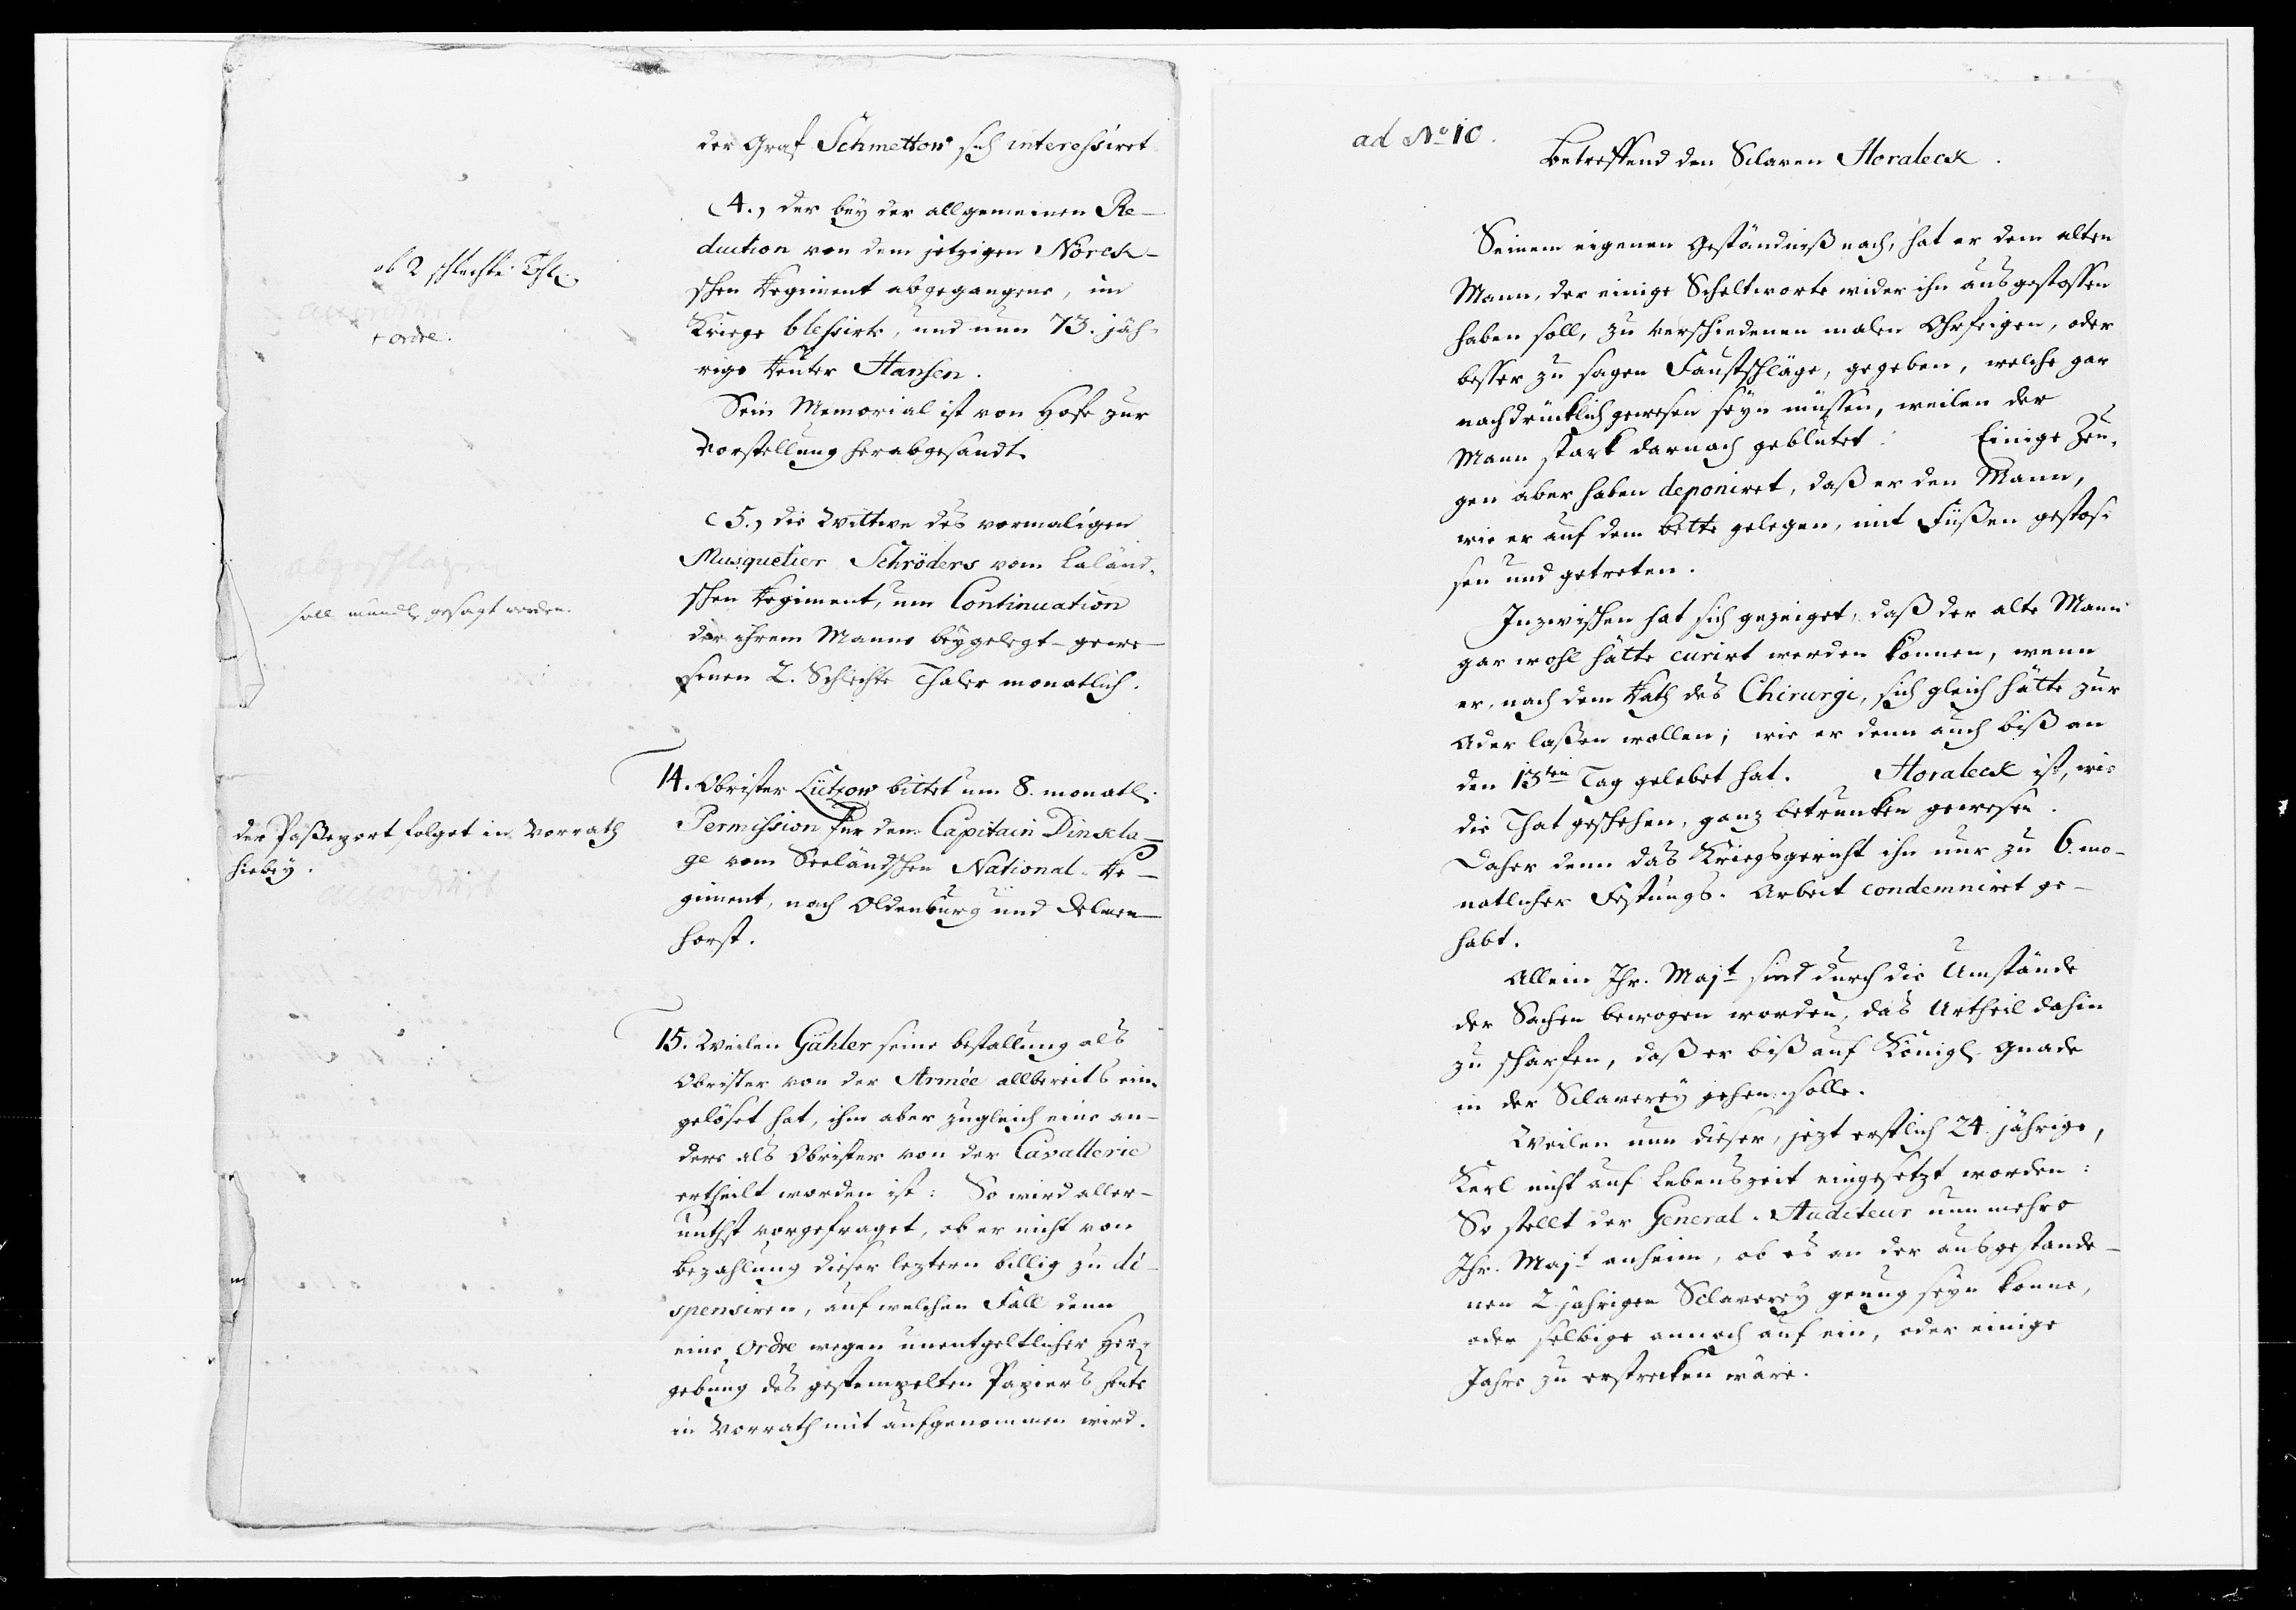 der Graf Schmettow sich interessiret
(4.) der bey der allgemeinen Re-
duction von dem jetzigen Nörck-
schen Regiment abgegangene, im
Kriege blessirte, und nun 73. jäh-
rige Reuter Hansen.
Sein Memorial ist von Hofe zur
Vorstellung herabgesandt.
ob 2 schlechte Thlr.
accordirt
+ ordre.
(5.) die Wittwe des vormaligen
Musquetier Schröders vom Laländ-
schen Regiment, um Continuation
der ihrem Manne beygelegt-gewe-
senen 2. Schlechte Thaler monatlich.
abgeschlagen
soll mündl. gesagt werden.
14. Obrister Lützow bittet um 8. monatl.
Permission für dem Capitain Dinckla-
ge vom Seeländschen National-Re-
giment, nach Oldenburg und Delmen-
horst.
der Passeport folget in Vorrath
hiebey.
accordirt
15. Weilen Gähler seine bestallung als
Obrister von der Armée allbereits ein-
gelöset hat, ihm aber zugleich eine an-
dere als Obrister von der Cavallerie
ertheilt worden ist: So wird aller-
unthst vorgefraget, ob er nicht von
bezahlung dieser leztern billig zu di-
spensiren, auf welchen Fall denn
eine Ordre wegen unentgeltlicher Her-
gebung des gestempelten Papiers heute
in Vorrath mit aufgenommen wird.
ad No 10.
Betreffend den Sclaven Horaleck.
Seinem eigenen Geständniß nach, hat er dem alten
Mann, der einige Scheltworte wider ihn ausgestossen
haben soll, zu verschiedenen malen Ohrfeigen, oder
besser zu sagen Faustschläge, gegeben, welche gar
nachdrücklich gewesen seyn müssen, weilen der
Mann stark darnach geblutet. Einige Zeu-
gen aber haben deponiret, daß er den Mann,
wie er auf dem bette gelegen, mit Füßen gestos-
sen und getreten.
Inzwischen hat sich gezeiget, daß der alte Mann
gar wohl hätte curirt werden können, wenn
er, nach dem Rath des Chirurgi, sich gleich hätte zur
Ader laßen wollen; wie er denn auch biß an
den 13ten Tag gelebet hat. Horaleck ist, wie
die That geschehen, ganz betrunken gewesen.
Daher denn das Kriegsgericht ihn nur zu 6. mo-
natlicher Festungs-Arbeit condemniret ge-
habt.
Allein Ihr. Majt sind durch die Umstände
der Sachen bewogen worden, das Urtheil dahin
zu schärfen, daß er biß auf Königl. Gnade
in der Sclaverey gehen solle.
Weilen nun dieser, jezt erstlich 24. jährige,
Kerl nicht auf Lebenszeit eingesetzt worden:
So stellt der General-Auditeur nunmehro
Ihr. Majt anheim, ob es an der ausgestande-
nen 2.jährigen Sclaverey genug seyn könne,
oder selbige annoch auf ein, oder einige
Jahre zu erstrecken wäre.